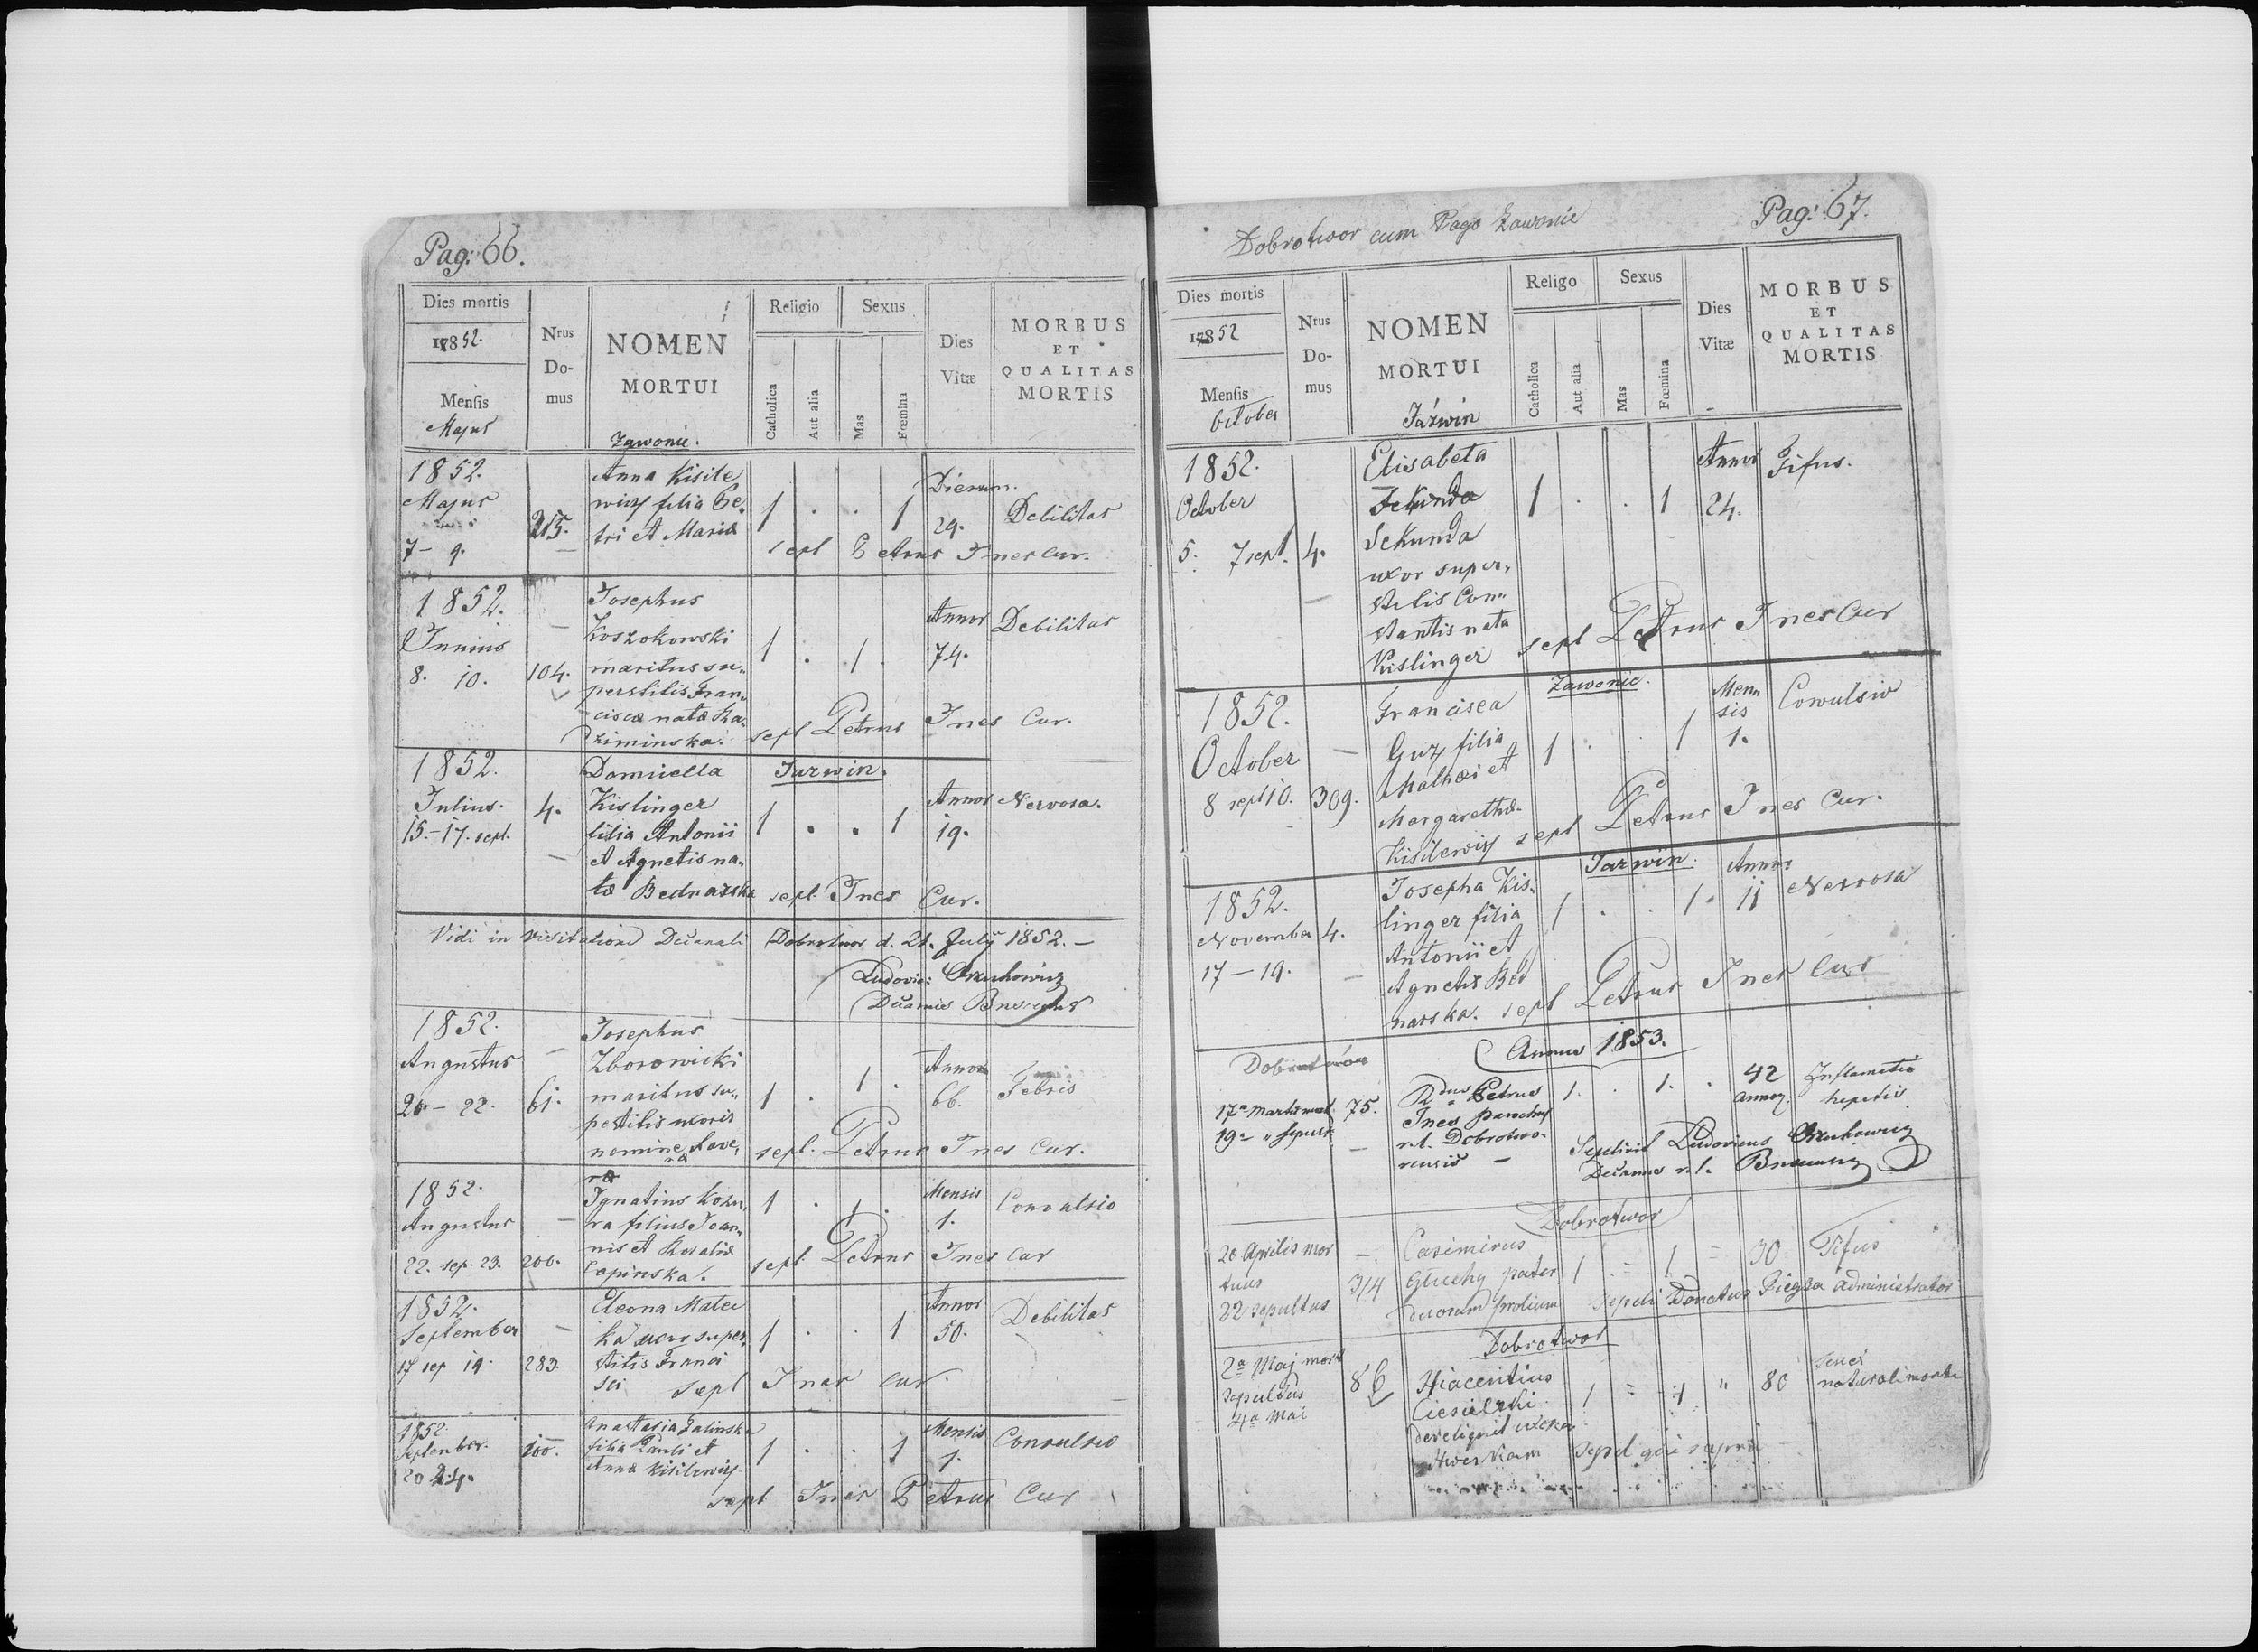 Pag: 66.
Dies mortis
1852.
Mensis
Majus
Nrus
Do-
mus
NOMEN
MORTUI
Zawonie.
Religio
Catholica
Aut alia
Sexus
Mas
Fœmina
Dies
Vitæ
MORBUS
ET
QUALITAS
MORTIS
1852.
Majus
7 - 9.
215.
Anna Kisile
wicz filia Pe,
tri et Mariæ
1 . . 1
Dierum.
29.
Debilitas
sepl Petrus Ines Cur.
1852.
Junius
8. 10.
104.
Josephus
Koszokowski
maritus su,,
perstitis Fran,,
ciscæ natæ Ra,
ziminska.
1 . 1 .
Annor
74.
Debilitas
sepl Petrus Ines Cur.
1852.
Julius.
15.-17. sept.
4.
Domicella
Kislinger
filia Antonii
et Agnetis na,
tæ Bednarska
Jazwin.
1 . . 1
Annor
19.
Nervosa.
sepl. Ines Cur.
Vidi in Visitatione Decanali Dobrotwor d. 21. July 1852. -
Ludovic: Orzechowicz
Decanus
1852.
Augustus
20 - 22.
61.
Josephus
Zborowicki
maritus su,,
perstitis uxoris
nomine
1 . 1 .
Annor
66.
Febris
sepl. Petrus Ines Cur.
1852.
Augustus
22. sep. 23.
206.
Ignatius Kozu,
ra filius Joan,,
nis et Rosaliæ
Lapinska.
1 . 1 .
Mensis
1.
Convulsio
sepl. Petrus Ines Cur
1852.
September
17 sep 19.
283.
Eleona Matec
ka uxor super,
stitis Franci
sci
1 . . 1
Annor
50.
Debilitas
sepl Ines Cur.
1852.
September.
20
100.
Anastasia Zalinska
filia Pauli et
Annæ Kisilewicz
1 . . 1
Mensis
1.
Convulsio
sepl Ines Petrus Cur
Dobrotwor cum Pago Zawonie
Pag: 67.
Dies mortis
1852
Mensis
October
Nrus
Do-
mus
NOMEN
MORTUI
Jazwin
Religo
Catholica
Aut alia
Sexus
Mas
Fœmina
Dies
Vitæ
MORBUS
ET
QUALITAS
MORTIS
1852.
October
5. 7 sept.
4.
Elisabeta
Sekunda
uxor super,
stitis Con,,
stantis nata
Kislinger
1 . . 1
Annor
24.
Tifus.
sepl Petrus Ines Cur
Zawonie.
1852.
October
8 sept 10.
309.
Francisca
Guz filia
Mathæi et
Margarethæ
Kisilewicz
1 . . 1
Men
sis
1.
Convulsio
sepl Petrus Ines Cur.
Jazwin.
1852.
November
17 - 19.
4.
Josepha Kis,
linger filia
Antonii et
Agnetis Bed
narska.
1 . . 1
Annor
11
Nervosa
sepl Petrus Ines Cur
Annus 1853.
17a Martii mort.
19a " sepult.
75.
Rdus Petrus
Ines parochus
r.l. Dobrotwo-
rensis -
1. . 1. .
42
annor.
Inflamatio
hepatis
Sepelivit Ludovicus Orzechowicz
Decanus r.l.
Dobrotwor
20 Aprilis mor
tuus
22 sepultus
314
Casimirus
Głuchy pater
duorum prolium
1 = 1 =
30
Tifus
sepeli Donatus Piegza administrator
Dobrotwor
2a Maj mort
sepultus
4a Mai
86
Hiacentius
Ciesielski
dereliquit uxore
1 = 1 "
80
naturali morte
sepel qui supra